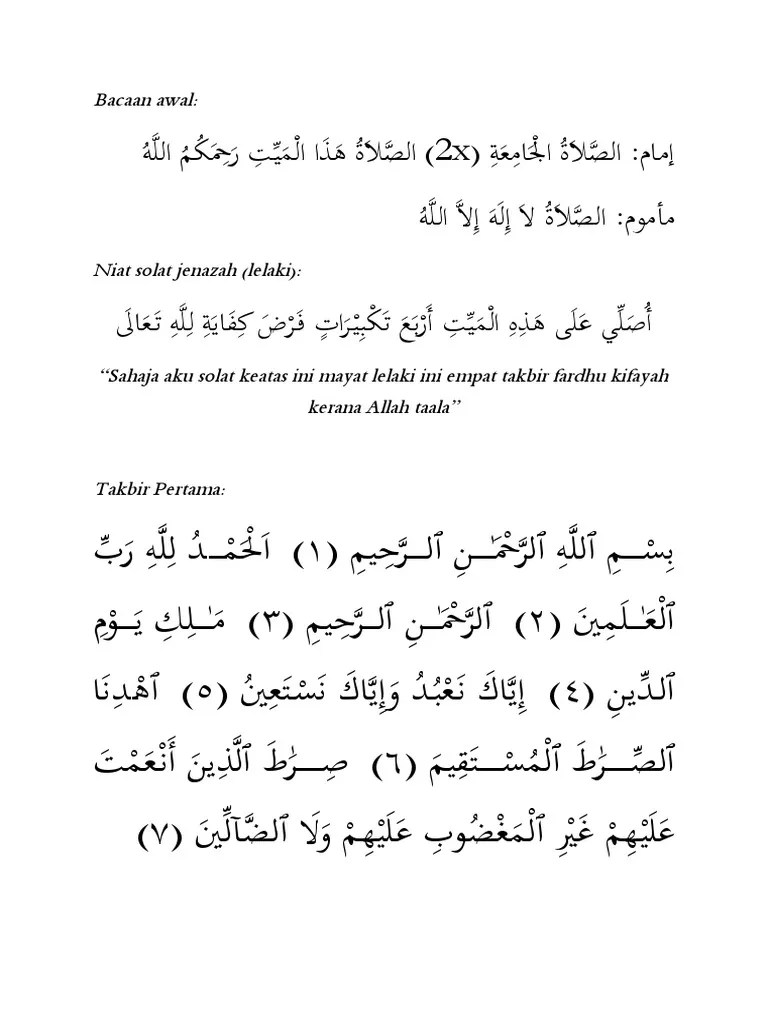 Bacaan awal:
إمام: الصَّلاَةُ الْجَامِعَةِ (2x) الصَّلاَةُ هَذَا الْمَيِّتِ رَحِمَكُمُ اللَّهُ
مأموم: الصَّلاَةُ لاَ إِلَهَ إِلاَّ اللَّهُ
Niat solat jenazah (lelaki):
أُصَلِّي عَلَى هَذِهِ الْمَيِّتِ أَرْبَعَ تَكْبِيْرَاتٍ فَرْضَ كِفَايَةِ لِلَّهِ تَعَالَى
“Sahaja aku solat keatas ini mayat lelaki ini empat takbir fardhu kifayah
kerana Allah taala”
Takbir Pertama:
بِسْمِ ٱللَّهِ ٱلرَّحْمَٰنِ ٱلرَّحِيمِ (١) اَلْحَمْدُ لِلَّهِ رَبِّ
ٱلْعَٰلَمِينَ (٢) ٱلرَّحْمَٰنِ ٱلرَّحِيمِ (٣) مَٰلِكِ يَوْمِ
ٱلدِّينِ (٤) إِيَّاكَ نَعْبُدُ وَإِيَّاكَ نَسْتَعِينُ (٥) ٱهْدِنَا
ٱلصِّرَٰطَ ٱلْمُسْتَقِيمَ (٦) صِرَٰطَ ٱلَّذِينَ أَنْعَمْتَ
عَلَيْهِمْ غَيْرِ ٱلْمَغْضُوبِ عَلَيْهِمْ وَلَا ٱلضَّآلِّينَ (٧)